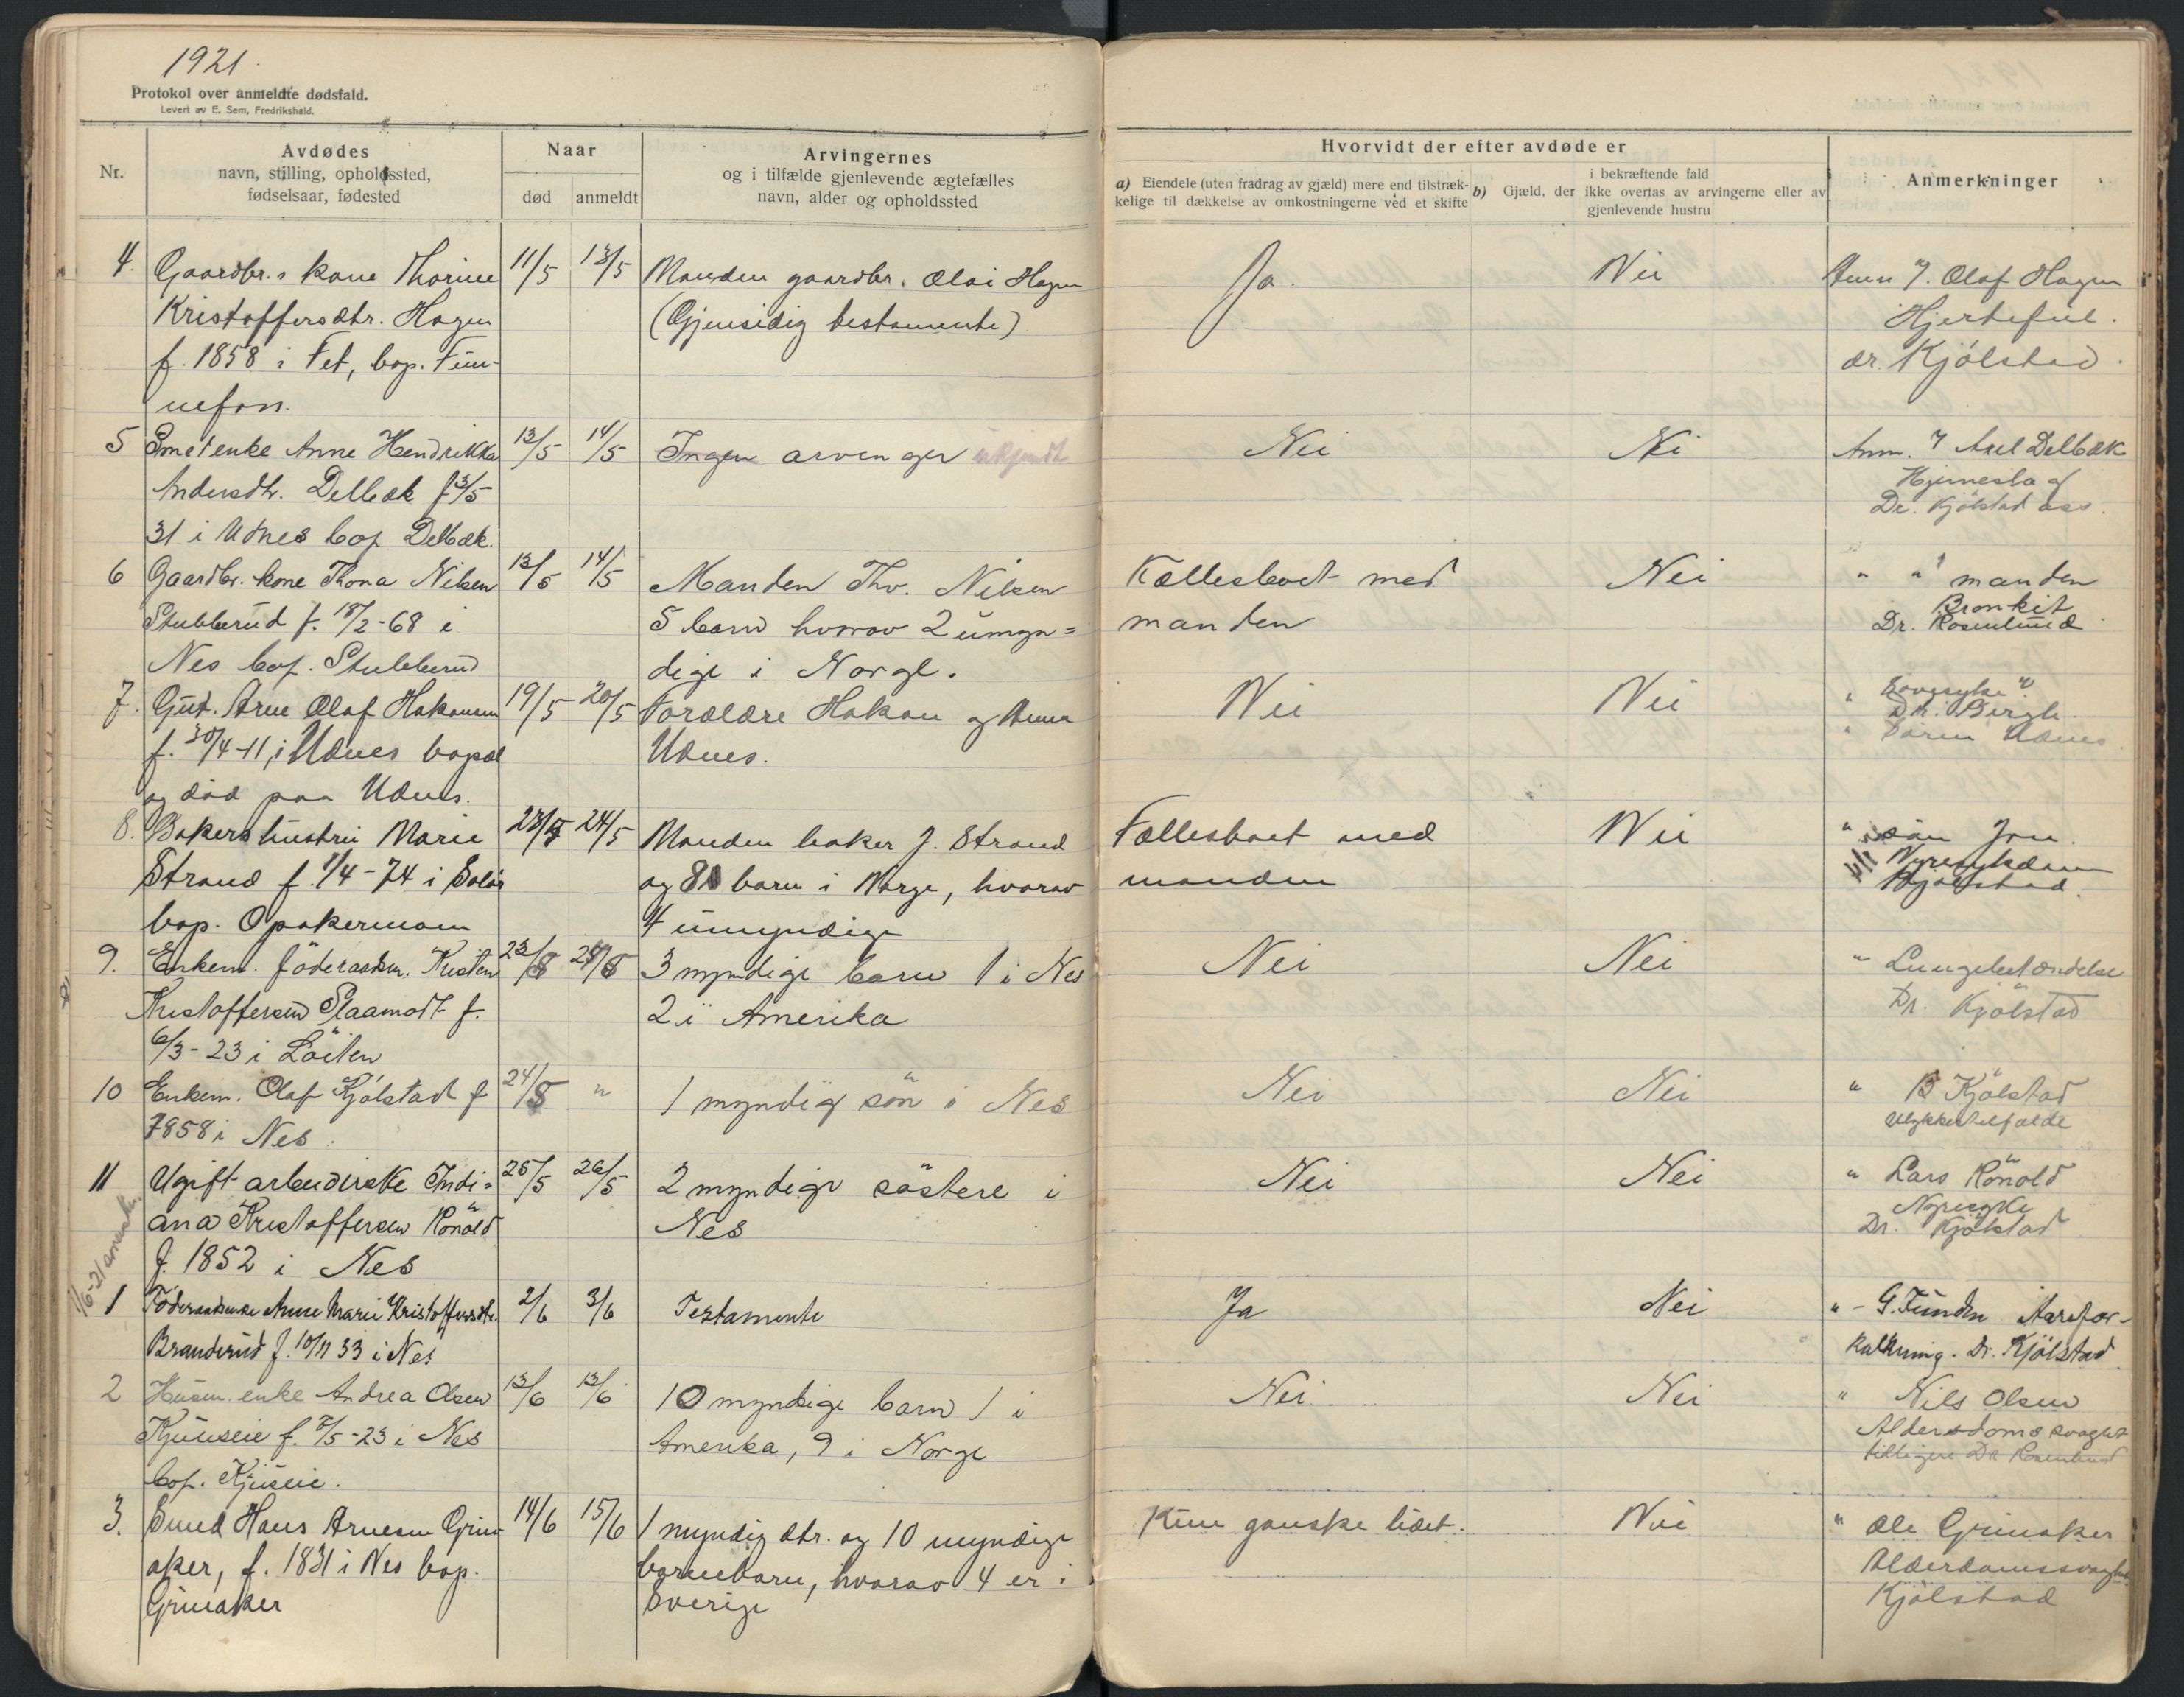 1921.
Protokol over anmeldte dødsfald.
Levert av E. Sem, Fredrikshald.
Nr.
Avdødes
navn, stilling, opholdssted,
fødselsaar, fødested
Naar
død
anmeldt
Arvingernes
og i tilfælde gjenlevende ægtefælles
navn, alder og opholdssted
Hvorvidt der efter avdøde er
a) Eiendele (uten fradrag av gjæld) mere end tilstræk-
kelige til dækkelse av omkostningerne ved et skifte
i bekræftende fald
b) Gjæld, der ikke overtas av arvingerne eller av
gjenlevende hustru
Anmerkninger
4. Gaardbr.s kone Thorine 11/5 13/5 Manden gaardbr. Olai Hagen Ja. Nei Olaf Hagen
Kristoffersdtr. Hagen (Gjensidig testamente) Hjertefeil.
f. 1858 i Fet, bop. Fun- dr. Kjölstad.
nefoss.
5 enke Anne Hendrikka 13/5 14/5 Ingen arvenger ukjendt Nei Nei Anm. Axel Delbæk
Andersdtr. Delbæk f 3/5
31 i Udnes bop Delbæk. Dr. Kjölstad ass.
6 Gaardbr. kone Thona Nilsen 13/5 14/5 Manden Thv. Nilsen Fællesboet med Nei " " manden
Stubberud f. 18/2-68 i 5 barn hvorav 2 umyn= manden Bronkit
Nes bop. Stubberud dige i Norge. Dr. Rosenlund
7. Gut. Arne Olaf Hakonsen 19/5 20/5 Forældre Hakon og Anna Nei Nei " Sovesyke
f. 30/4-11, i Udnes bopæl Udnes. Dr. Bergh
og död paa Udnes. " Udnes
8. Bakers hustru Marie 23/5 24/5 Manden baker J. Strand Fællesboet med Nei " sön Jon.
Strand f. 1/4-74 i Solör og 8 barn i Norge, hvorav manden Nyresykdom
bop. Opakermoen 4 umyndige Kjölstad.
9. Enkem. föderaadsm. Kristen 23/5 24/5 3 myndige barn 1 i Nes Nei Nei " Lungebetændelse
Kristoffersen Slaamodt f. 2 i Amerika Dr. Kjölstad
6/3-23 i Löiten
10 Enkem. Olaf Kjölstad f 24/5 " 1 myndig sön i Nes Nei Nei " B Kjölstad
1858 i Nes. Ulykkestilfælde
11 Ugift arbeiderske Indi= 25/5 26/5 2 myndige söstere i Nei Nei " Lars Rönold
ana Kristoffersen Rönold Nes Nyresyke
f. 1852 i Nes Dr. Kjölstad
1 Föderaadsenke Anne Marie Kristoffersdtr. 2/6 3/6 Testamente Ja Nei " - G. Funder Aarefor-
Branderud f. 10/11 33 i Nes kalkning. Dr. Kjölstad
2 Husm. enke Andrea Olsen 13/6 13/6 10 myndige barn 1 i Nei Nei " Nils Olsen
f. 7/5-23 i Nes Amerika, 9 i Norge Alderdomssvaghet
bop. tidligere Dr Rosenlund
3. Smed Hans Arnesen Grin- 14/6 15/6 1 myndig dtr. og 10 myndige Kun ganske lidet. Nei " Ole Grinaker
aker, f. 1831 i Nes bop. barnebarn, hvorav 4 er i Alderdomssvaghet
Grinaker Sverige Kjölstad